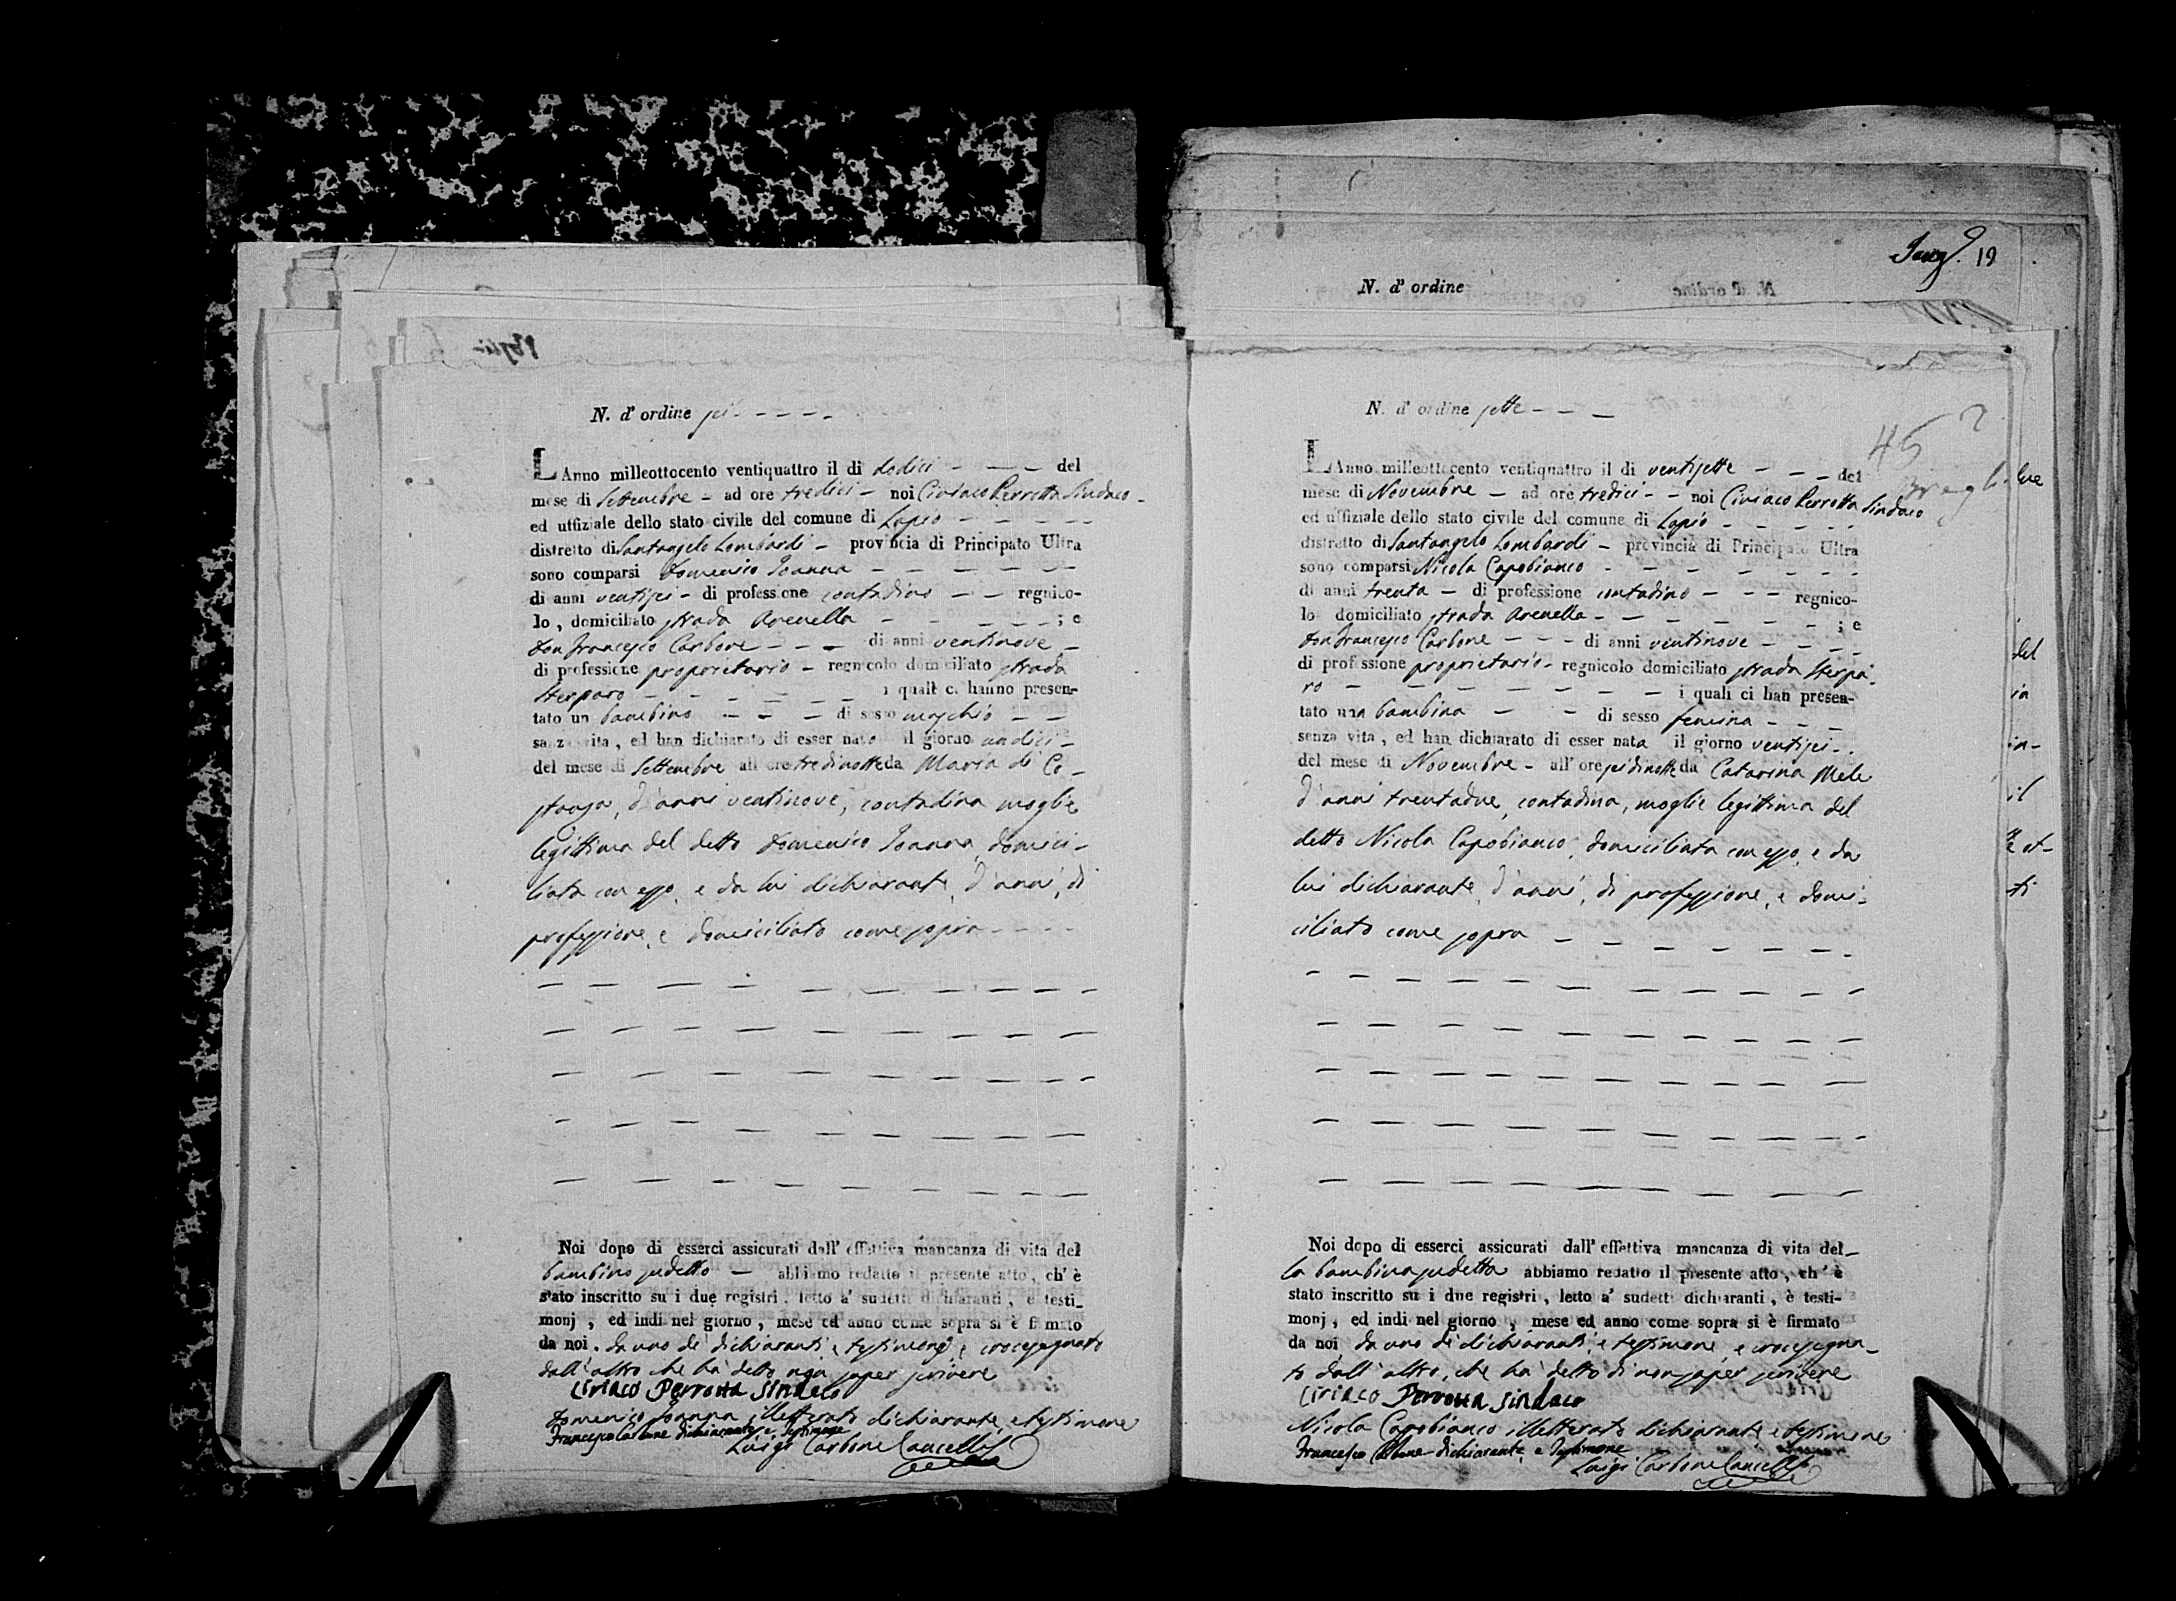 N. d' ordine sei
L Anno milleottocento ventiquattro il di dodici del
mese di Settembre ad ore tredici noi Ciriaco Perrotta Sindaco
ed uffiziale dello stato civile del comune di Lapio
distretto di Santangelo Lombardi provincia di Principato Ultra
sono comparsi Domenico Ioanna
di anni ventisei di professione contadino regnico-
lo, domiciliato strada Arenella ; e
Don Francesco Carbone di anni ventinove
di professione proprietario regnicolo domiciliato strada
Sterparo i quali ci hanno presen-
tato un bambino di sesso maschio
sanza vita, ed han dichiarato di esser nato il giorno undici
del mese di Settembre all ore tredinotte da Maria di Co-
stanza, d'anni ventinove, contadina moglie
legittima del detto Domenico Ioanna, domici-
liata con esso, e da lui dichiarante, d'anni, di
professione, e domiciliato come sopra
Noi dopo di esserci assicurati dall' effettiva mancanza di vita del
bambino sudetto abbiamo redatto il presente atto, ch' è
stato inscritto su i due registri, letto a' sudetti dichiaranti, e testi-
monj, ed indi nel giorno, mese ed anno come sopra si è firmato
da noi, da uno de' dichiaranti, e testimone, e crocesegnato
dall' altro che ha detto non saper scrivere
Ciriaco Perrotta Sindaco
Domenico Ioanna illetterato dichiarante, e testimone
Francesco Carbone dichiarante e Testimone
Luigi Carbone Cancell
N. d' ordine
19
N. d' ordine sette
45
L Anno milleottocento ventiquattro il di ventisette del
mese di Novembre ad ore tredici noi Ciriaco Perrotta Sindaco
ed uffiziale dello stato civile del comune di Lapio
distretto di Santangelo Lombardi provincia di Principato Ultra
sono comparsi Nicola Capobianco
di anni trenta di professione contadino regnico-
lo domiciliato strada Arenella ; e
Don Francesco Carbone di anni ventinove
di professione proprietario regnicolo domiciliato strada Sterpa-
ro i quali ci han presen-
tato una bambina di sesso femina
senza vita, ed han dichiarato di esser nata il giorno ventisei
del mese di Novembre all' ore seidinotte da Catarina Mele
d'anni trentadue, contadina, moglie legittima del
detto Nicola Capobianco, domiciliata con esso, e da
lui dichiarante, d'anni, di professione, e domi-
ciliato come sopra
Noi dopo di esserci assicurati dall' effettiva mancanza di vita del-
la bambina sudetta abbiamo redatto il presente atto, ch' è
stato inscritto su i due registri, letto a' sudetti dichiaranti, è testi-
monj, ed indi nel giorno, mese ed anno come sopra si è firmato
da noi, da uno de' dichiaranti, e testimone, e crocesegna-
to dall' altro, che ha detto di non saper scrivere
Ciriaco Perrotta Sindaco
Nicola Capobianco illetterato dichiarante e testimone
Francesco Carbone dichiarante, e Testimone
Luigi Carbone Cancell